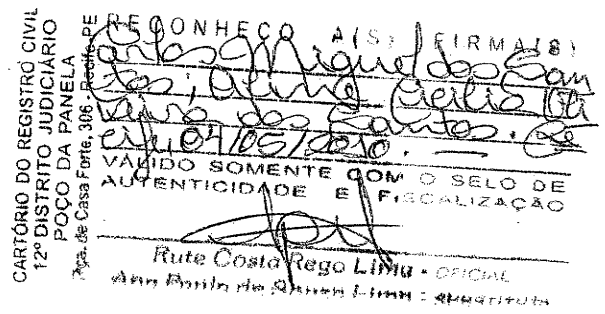 CARTÓRIO DO REGISTRO CIVIL
12º DISTRITO JUDICIÁRIO
POÇO DA PANELA
Pça. de Casa Forte, 306 - Recife-PE
RECONHEÇO A(S) FIRMA(S)
Carlos Miguel dos San
tos; Aline Cecilio Oli
veira dos Santos. Re
cife 04/05/2010.
VÁLIDO SOMENTE COM O SELO DE
AUTENTICIDADE E FISCALIZAÇÃO
Rute Costa Rego Lima - OFICIAL
Ana Paula de Lima - SUBSTITUTA